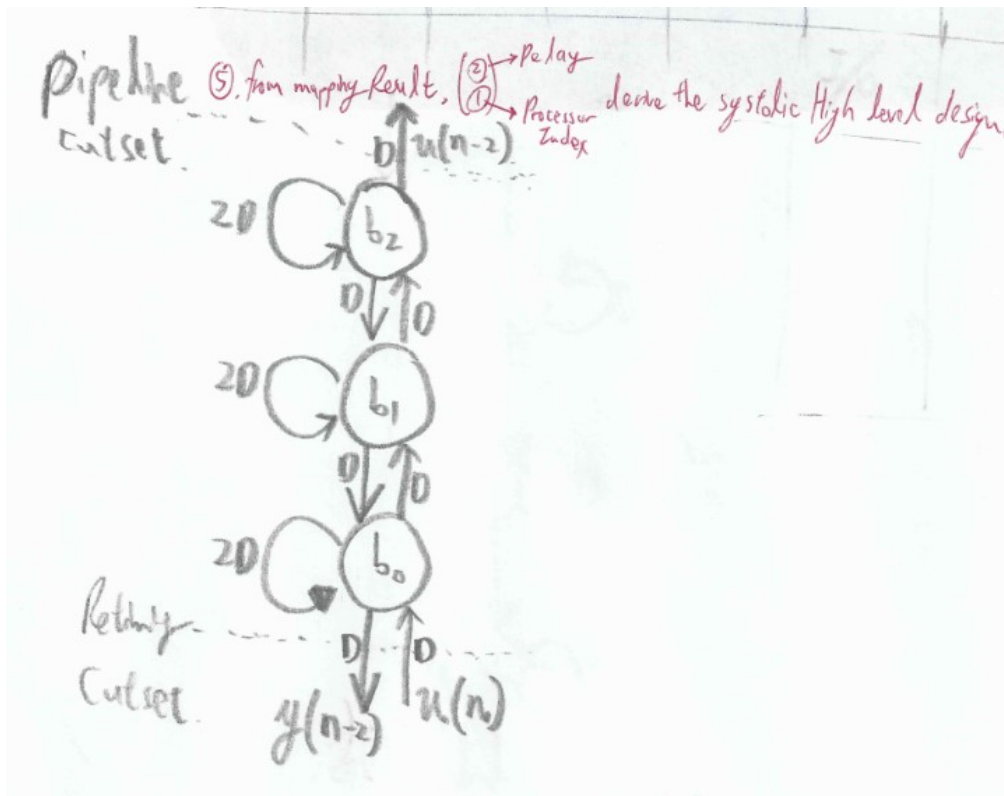 Pipeline
cutset.
⑤. from mapping Result, (② → Delay
① → Processor Index)
derive the systolic High level design
D u(n-2)
2D b₂
D D
2D b₁
D D
2D b₀
Retiming
Cutset.
D D
y(n-2) u(n)